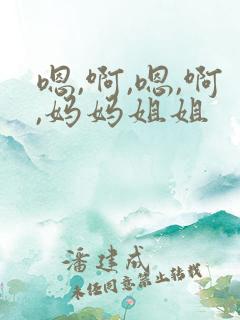 嗯,啊,嗯,啊
,妈妈姐姐
潘建成
未经同意禁止转载